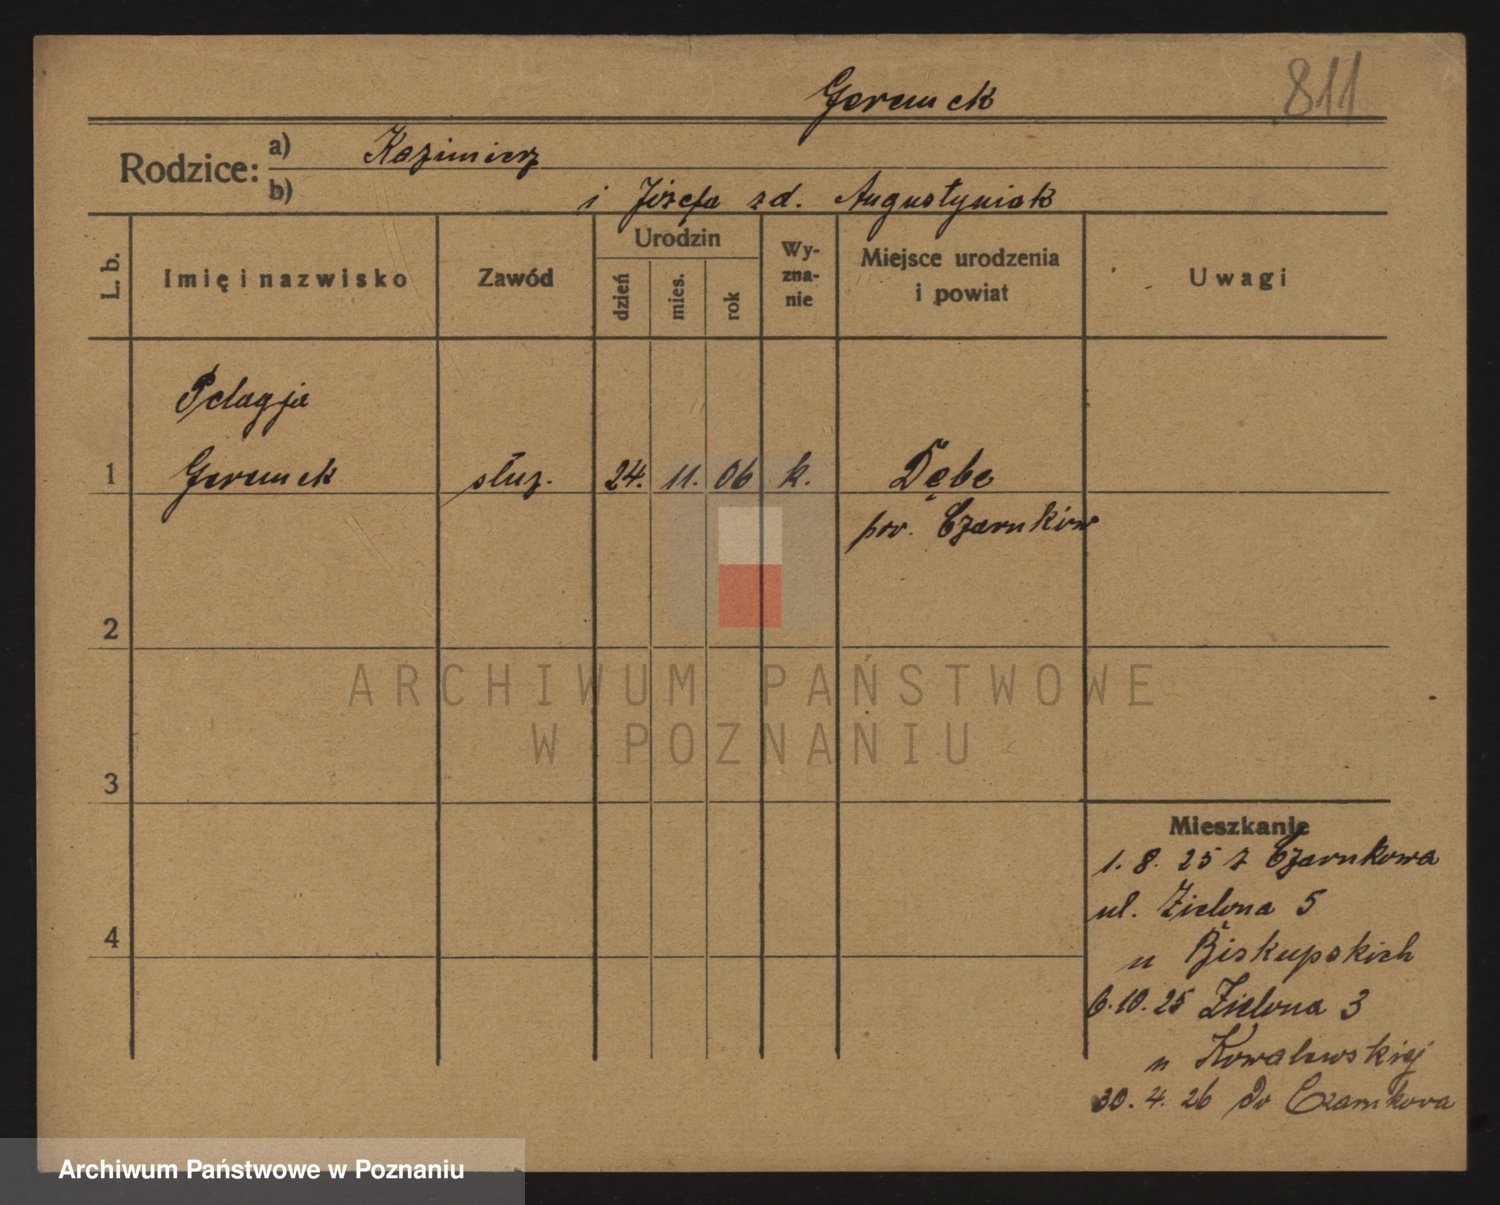 Geremek
811
Rodzice:
a) Kazimierz
b) i Józefa zd. Augustyniak
L. b.
Imię i nazwisko
Zawód
Urodzin
dzień
mies.
rok
Wy-
zna-
nie
Miejsce urodzenia
i powiat
Uwagi
Pelagja
1 Geremek służ. 24. 11. 06 k. Dębe
pow. Czarnków
2
3
4
Mieszkanie
1. 8. 25 z Czarnkowa
ul. Zielona 5
u Biskupskich
6. 10. 25 Zielona 3
u Kowalewskiej
30. 4. 26 do Czarnkowa
ARCHIWUM PAŃSTWOWE
W POZNANIU
Archiwum Państwowe w Poznaniu